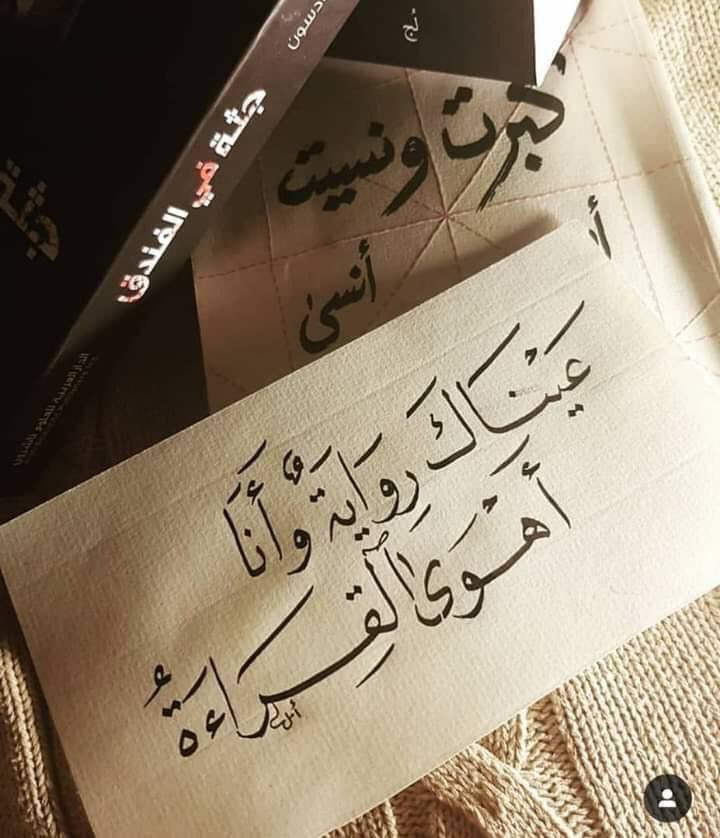 جثة في الفندق
كبرت ونسيت
أنسى
عَيْنَاكَ رِوَايَةٌ وَأَنَا
أَهْوَى ٱلْقِرَاءَةُ